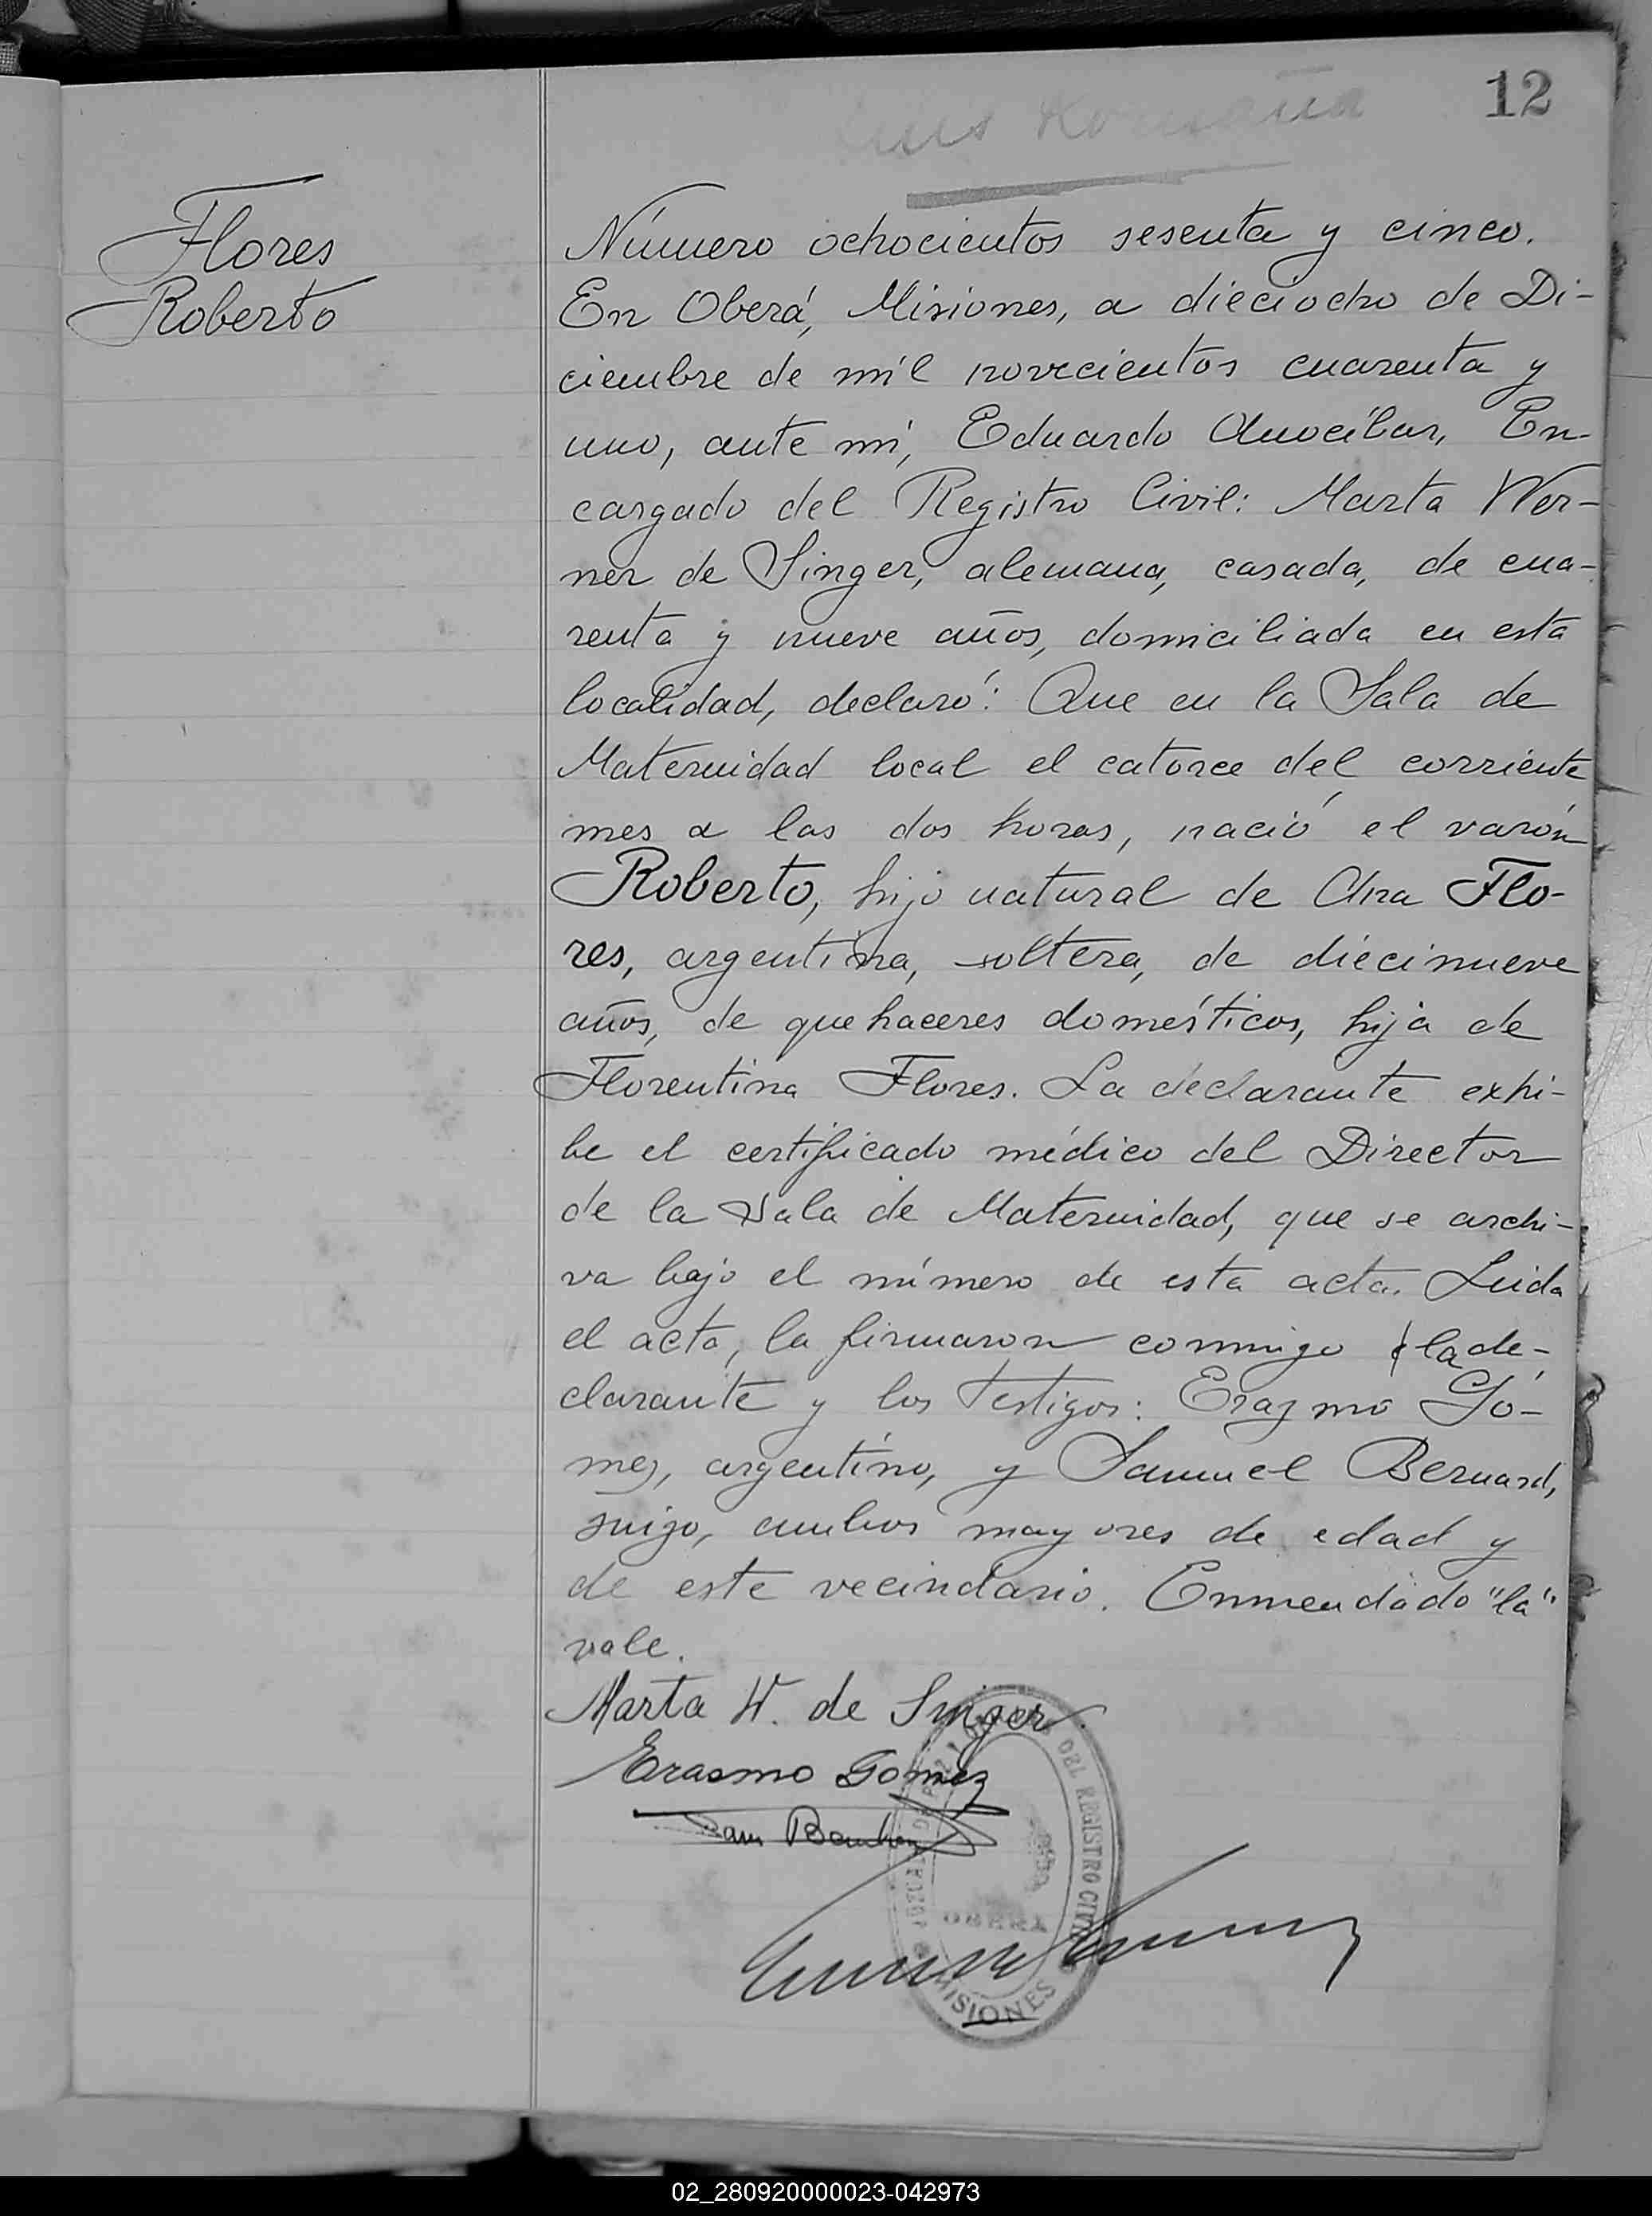 12
Flores
Roberto
Número ochocientos sesenta y cinco.
En Oberá, Misiones, a dieciocho de Di-
ciembre de mil novecientos cuarenta y
uno, ante mí, Eduardo En-
cargado del Registro Civil: Marta Wer-
ner de Singer, alemana, casada, de cua-
renta y nueve años, domiciliada en esta
localidad, declaró: Que en la Sala de
Maternidad local el catorce del corriente
mes a las dos horas, nació el varón
Roberto, hijo natural de Ana Flo-
res, argentina, soltera, de diecinueve
años, de quehaceres domésticos, hija de
Florentina Flores. La declarante exhi-
be el certificado médico del Director
de la Sala de Maternidad, que se archi-
va bajo el número de esta acta. Leida
el acta, la firmaron conmigo la de-
clarante y los testigos: Erazmo Gó-
mez, argentino, y Samuel Bernard,
suizo, ambos mayores de edad y
de este vecindario. Enmendado "la"
vale.
Marta W. de Singer
Erasmo Gomez
Sam
DEL REGISTRO CIVIL
OBERA
MISIONES
02_280920000023-042973